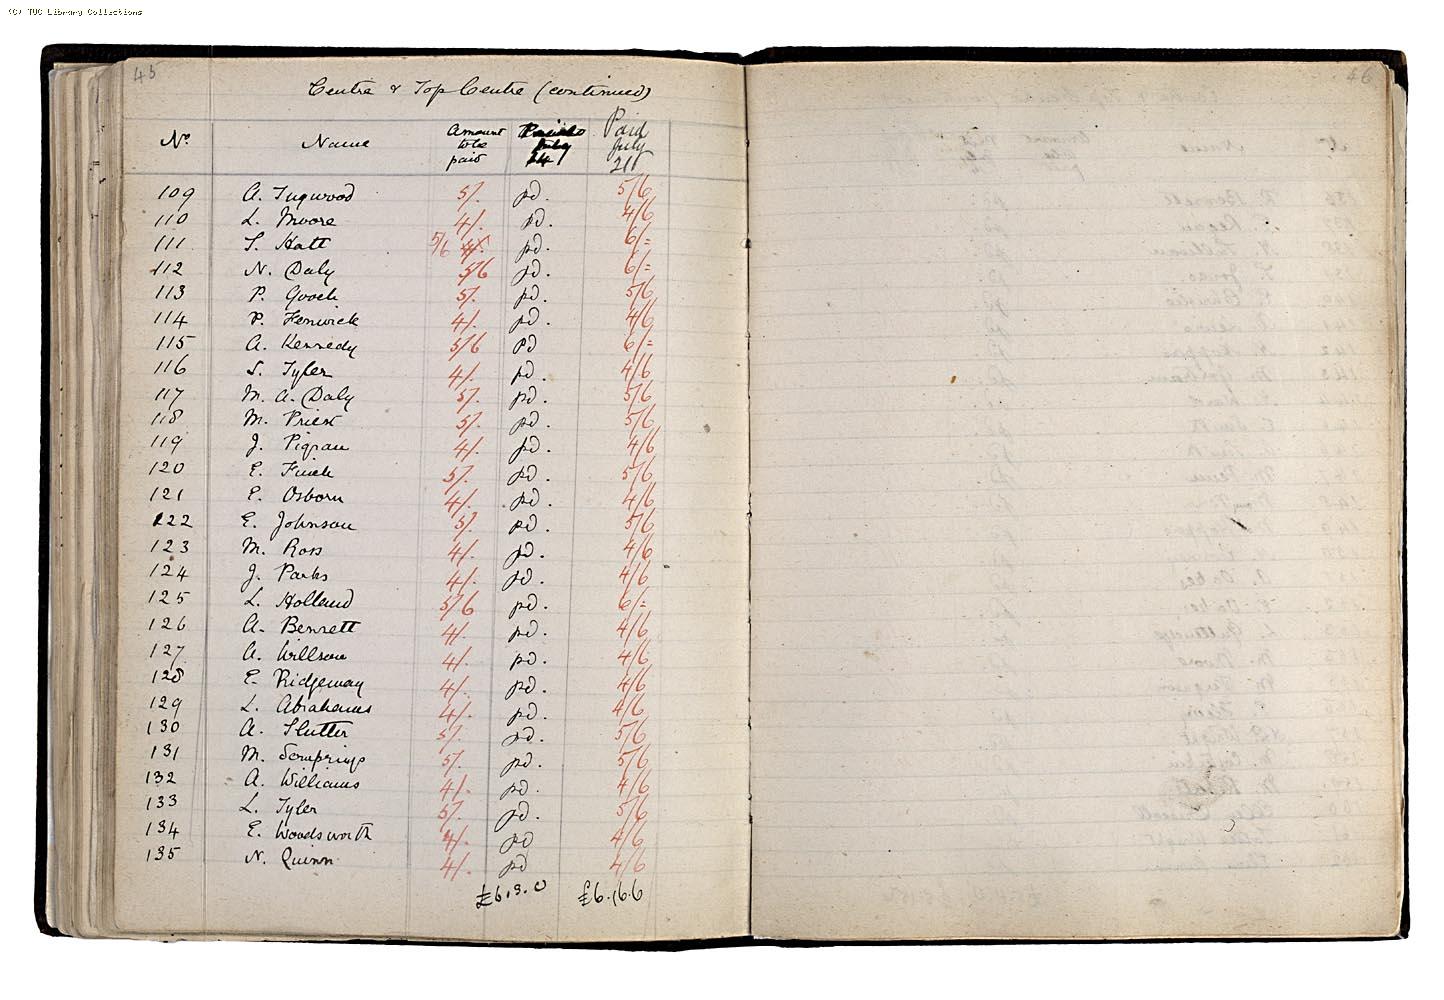 (C) TUC Library Collections
45
46
Centre & Top Centre (continued)
No. Name Amount to be paid July 14 Paid July 21st
109 A. Ingwood 5/. pd. 5/6
110 L. Moore 4/. pd. 4/6
111 S. Hatt 5/6 pd. 6/=
112 N. Daly 5/6 pd. 6/=
113 P. Gooch 5/. pd. 5/6
114 P. Fenwick 4/. pd. 4/6
115 A. Kennedy 5/6 pd 6/=
116 S. Tyler 4/. pd. 4/6
117 M. A. Daly 5/. pd. 5/6
118 M. Priest 5/. pd. 5/6
119 J. Pigram 4/. pd. 4/6
120 E. Finch 5/. pd. 5/6
121 E. Osborn 4/. pd. 4/6
122 E. Johnson 5/. pd. 5/6
123 M. Ross 4/. pd. 4/6
124 J. Parks 4/. pd. 4/6
125 L. Holland 5/6 pd. 6/=
126 A. Bennett 4/. pd. 4/6
127 A. Willson 4/. pd. 4/6
128 E. Ridgeway 4/. pd. 4/6
129 L. Abrahams 4/. pd. 4/6
130 A. Flutter 5/. pd. 5/6
131 M. Somprings 5/. pd. 5/6
132 A. Williams 4/. pd. 4/6
133 L. Tyler 5/. pd. 5/6
134 E. Woodsworth 4/. pd 4/6
135 N. Quinn 4/. pd 4/6
£6.3.0 £6.16.6